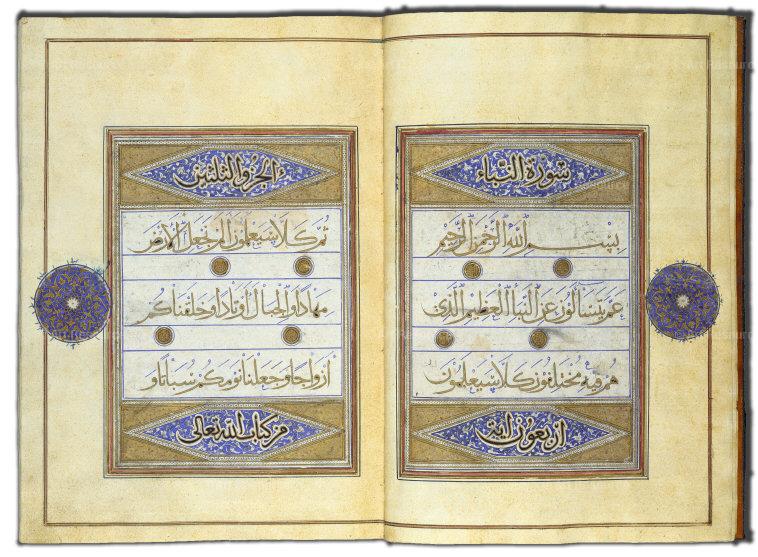 سورة النباء
بِسْمِ اللَّهِ الرَّحْمَنِ الرَّحِيمِ
عم يتسألون عن النبأ العظيم الذي
هم فيه مختلفون كلا سيعلمون
اربعون اية
الجزو الثلثين
ثم كلا سيعلمون الم نجعل الارض
مهادا والجبال اوتادا وخلقناكم
ازواجا وجعلنا نومكم سباتا و
من كتاب الله تعالى